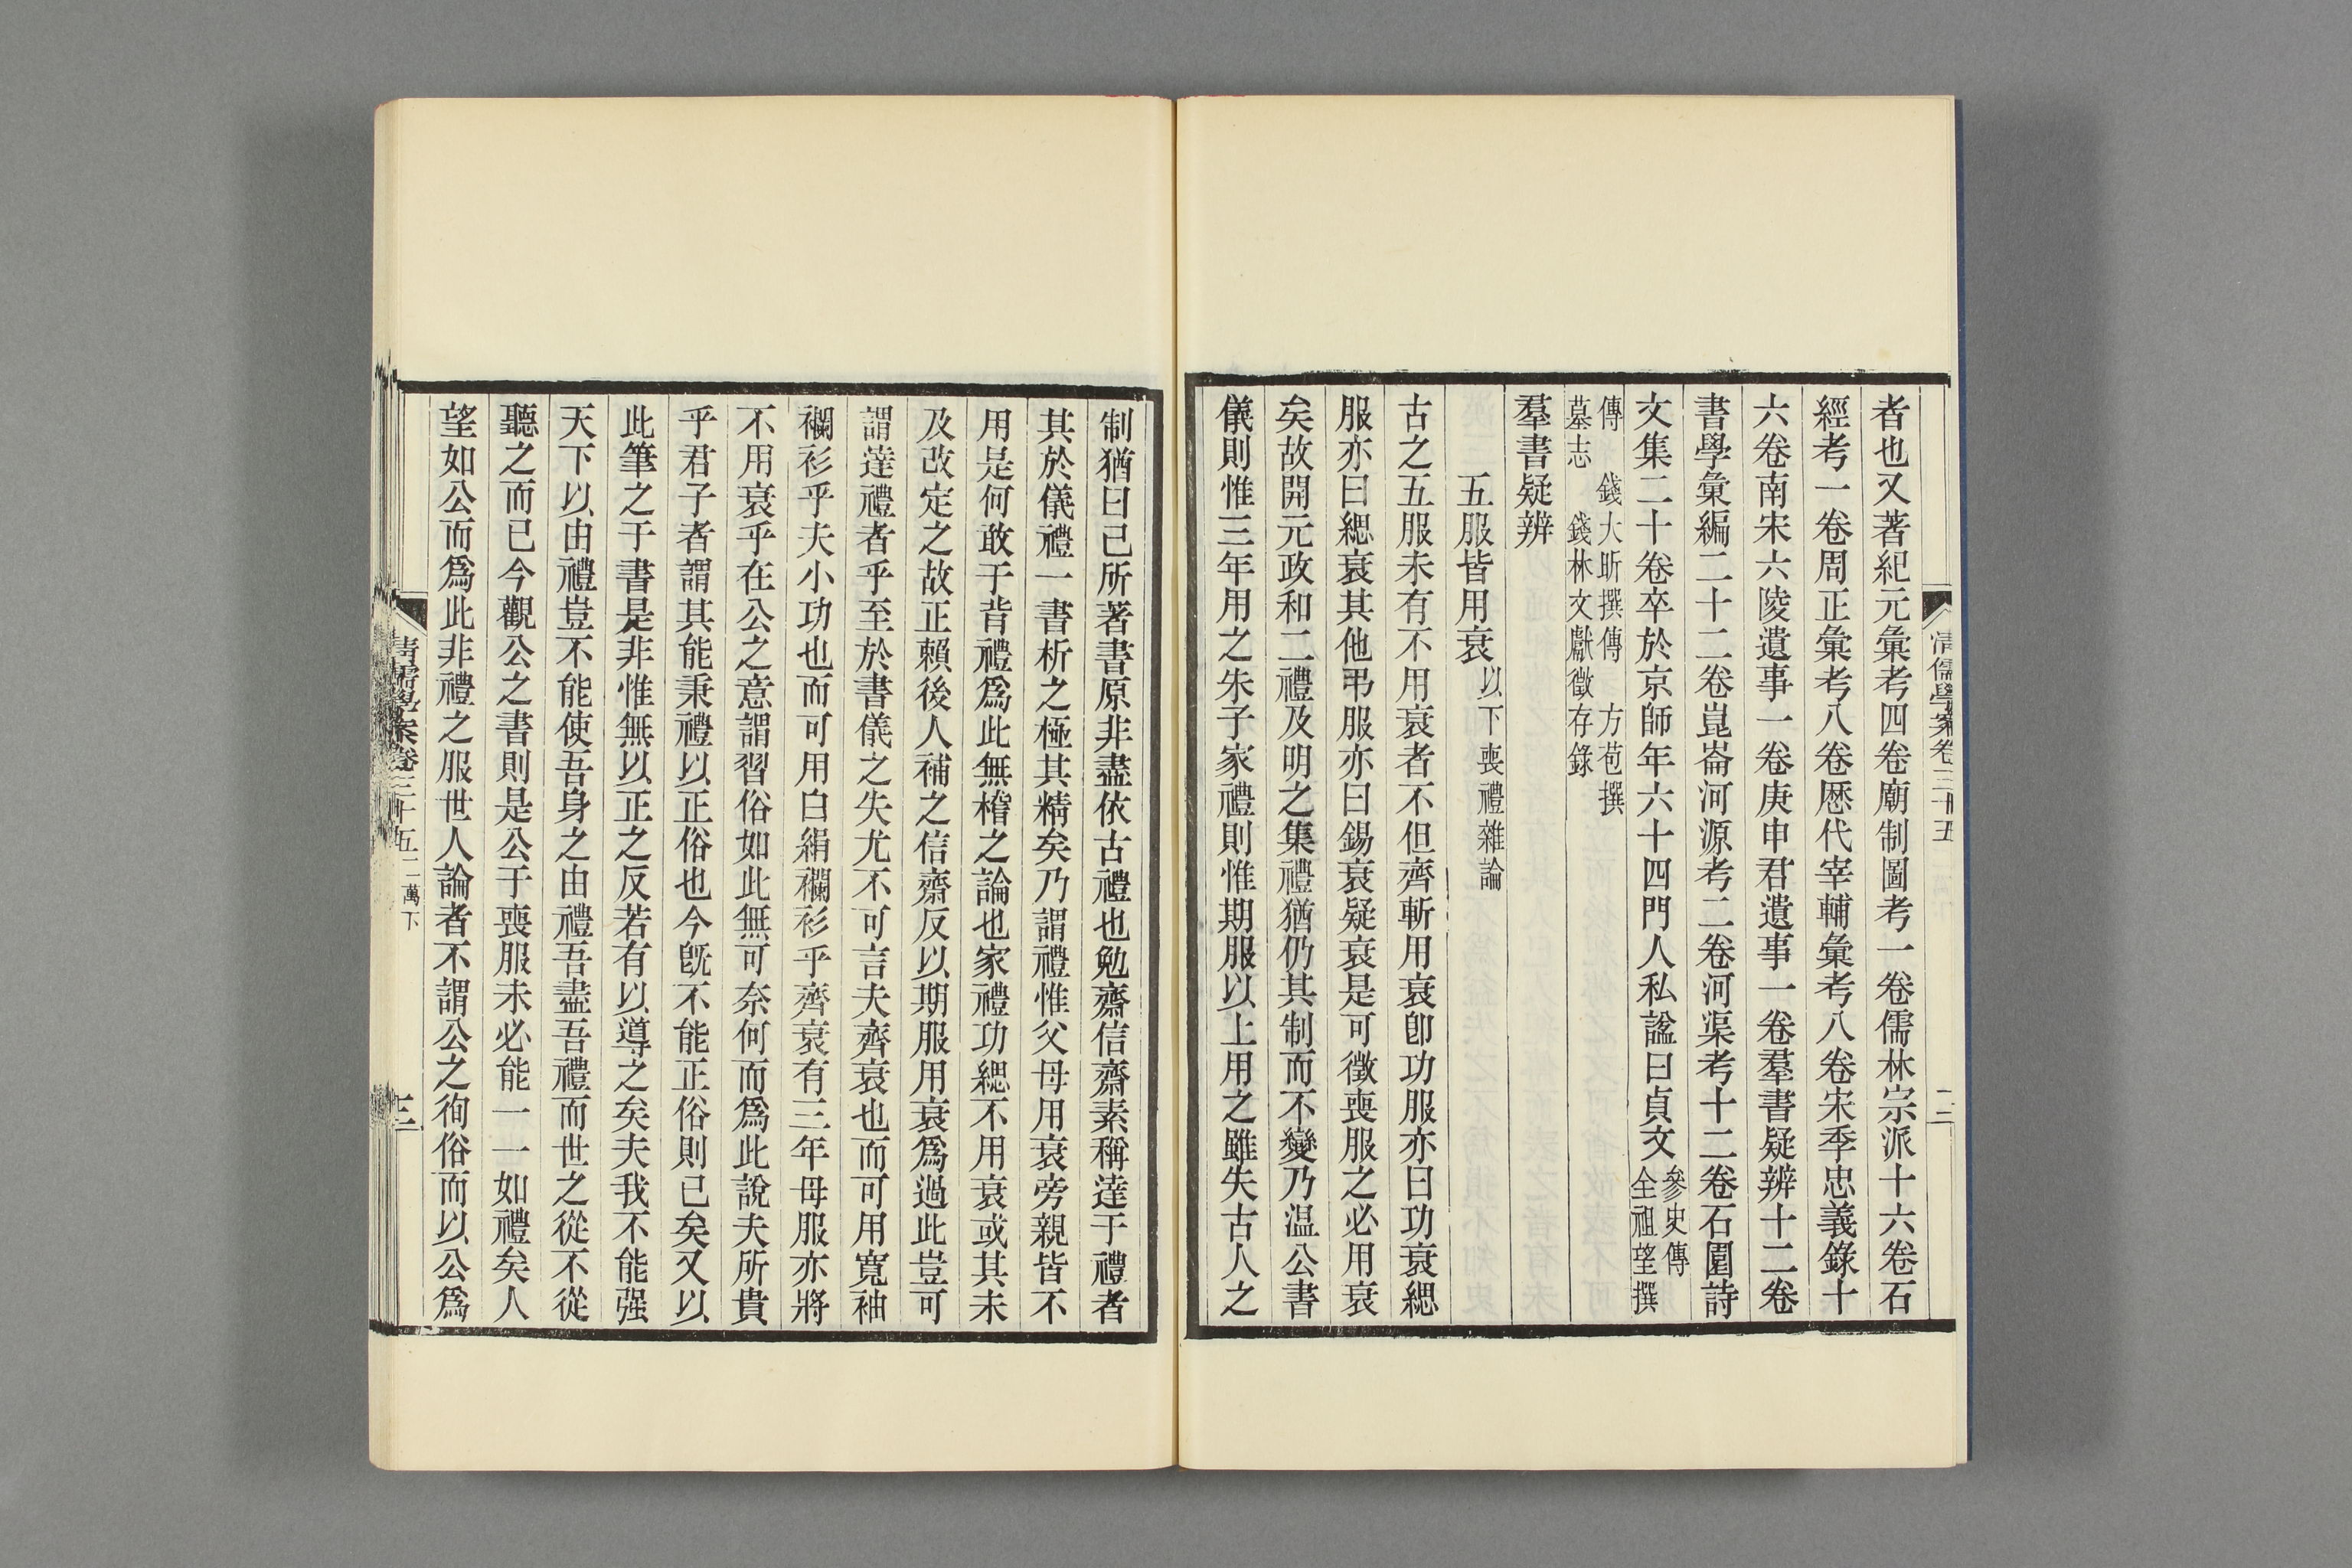 清儒學案卷三十五
二
者也又著紀元彙考四卷廟制圖考一卷儒林宗派十六卷石
經考一卷周正彙考八卷歷代宰輔彙考八卷宋季忠義錄十
六卷南宋六陵遺事一卷庚申君遺事一卷羣書疑辨十二卷
書學彙編二十二卷崑崙河源考二卷河渠考十二卷石園詩
文集二十卷卒於京師年六十四門人私諡曰貞文參史傳 全祖望撰
傳 錢大昕撰傳 方苞撰
墓志 錢林文獻徵存錄
羣書疑辨
五服皆用衰以下喪禮雜論
古之五服未有不用衰者不但齊斬用衰卽功服亦曰功衰緦
服亦曰緦衰其他弔服亦曰錫衰疑衰是可徵喪服之必用衰
矣故開元政和二禮及明之集禮猶仍其制而不變乃温公書
儀則惟三年用之朱子家禮則惟期服以上用之雖失古人之
制猶曰己所著書原非盡依古禮也勉齋信齋素稱達于禮者
其於儀禮一書析之極其精矣乃謂禮惟父母用衰旁親皆不
用是何敢于背禮爲此無稽之論也家禮功緦不用衰或其未
及改定之故正賴後人補之信齋反以期服用衰爲過此豈可
謂達禮者乎至於書儀之失尤不可言夫齊衰也而可用寬袖
襴衫乎夫小功也而可用白絹襴衫乎齊衰有三年母服亦將
不用衰乎在公之意謂習俗如此無可奈何而爲此說夫所貴
乎君子者謂其能秉禮以正俗也今旣不能正俗則已矣又以
此筆之于書是非惟無以正之反若有以導之矣夫我不能强
天下以由禮豈不能使吾身之由禮吾盡吾禮而世之從不從
聽之而已今觀公之書則是公于喪服未必能一一如禮矣人
望如公而爲此非禮之服世人論者不謂公之徇俗而以公爲
清儒學案卷三十五 二萬下
三